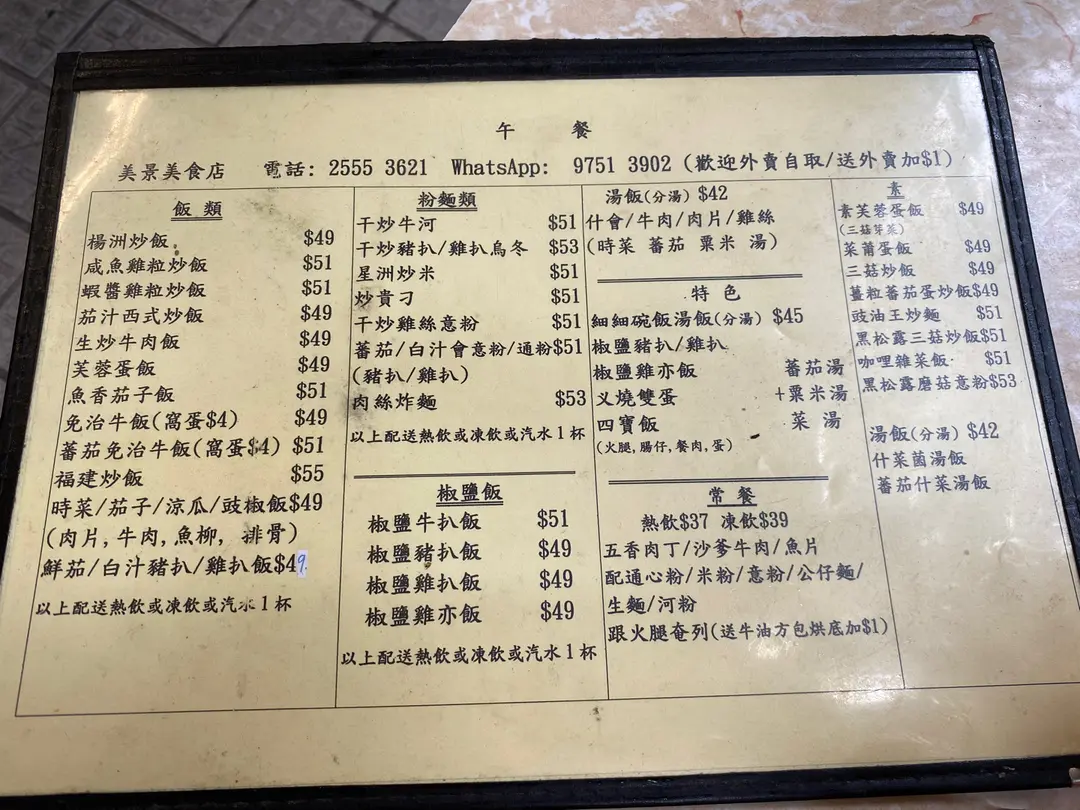 午 餐
美景美食店 電話: 2555 3621 WhatsApp: 9751 3902 (歡迎外賣自取/送外賣加$1)
飯 類
楊洲炒飯 $49
咸魚雞粒炒飯 $51
蝦醬雞粒炒飯 $51
茄汁西式炒飯 $49
生炒牛肉飯 $49
芙蓉蛋飯 $49
魚香茄子飯 $51
免治牛飯(窩蛋$4) $49
蕃茄免治牛飯(窩蛋$4) $51
福建炒飯 $55
時菜/茄子/涼瓜/豉椒飯$49
(肉片, 牛肉, 魚柳, 排骨)
鮮茄/白汁豬扒/雞扒飯$49.
以上配送熱飲或凍飲或汽水1杯
粉麵類
干炒牛河 $51
干炒豬扒/雞扒烏冬 $53
星洲炒米 $51
炒貴刁 $51
干炒雞絲意粉 $51
蕃茄/白汁會意粉/通粉$51
(豬扒/雞扒)
肉絲炸麵 $53
以上配送熱飲或凍飲或汽水1杯
椒鹽飯
椒鹽牛扒飯 $51
椒鹽豬扒飯 $49
椒鹽雞扒飯 $49
椒鹽雞亦飯 $49
以上配送熱飲或凍飲或汽水1杯
湯飯(分湯) $42
什會/牛肉/肉片/雞絲
(時菜 蕃茄 粟米 湯)
特 色
細細碗飯湯飯(分湯) $45
椒鹽豬扒/雞扒
椒鹽雞亦飯 蕃茄湯
义燒雙蛋 +粟米湯
四寶飯 菜 湯
(火腿, 腸仔, 餐肉, 蛋)
常 餐
熱飲$37 凍飲$39
五香肉丁/沙爹牛肉/魚片
配通心粉/米粉/意粉/公仔麵/
生麵/河粉
跟火腿奄列(送牛油方包烘底加$1)
素
素芙蓉蛋飯 $49
(三菇芽菜)
菜莆蛋飯 $49
三菇炒飯 $49
薑粒蕃茄蛋炒飯$49
豉油王炒麵 $51
黑松露三菇炒飯$51
咖哩雜菜飯 $51
黑松露磨菇意粉$53
湯飯(分湯) $42
什菜菌湯飯
蕃茄什菜湯飯